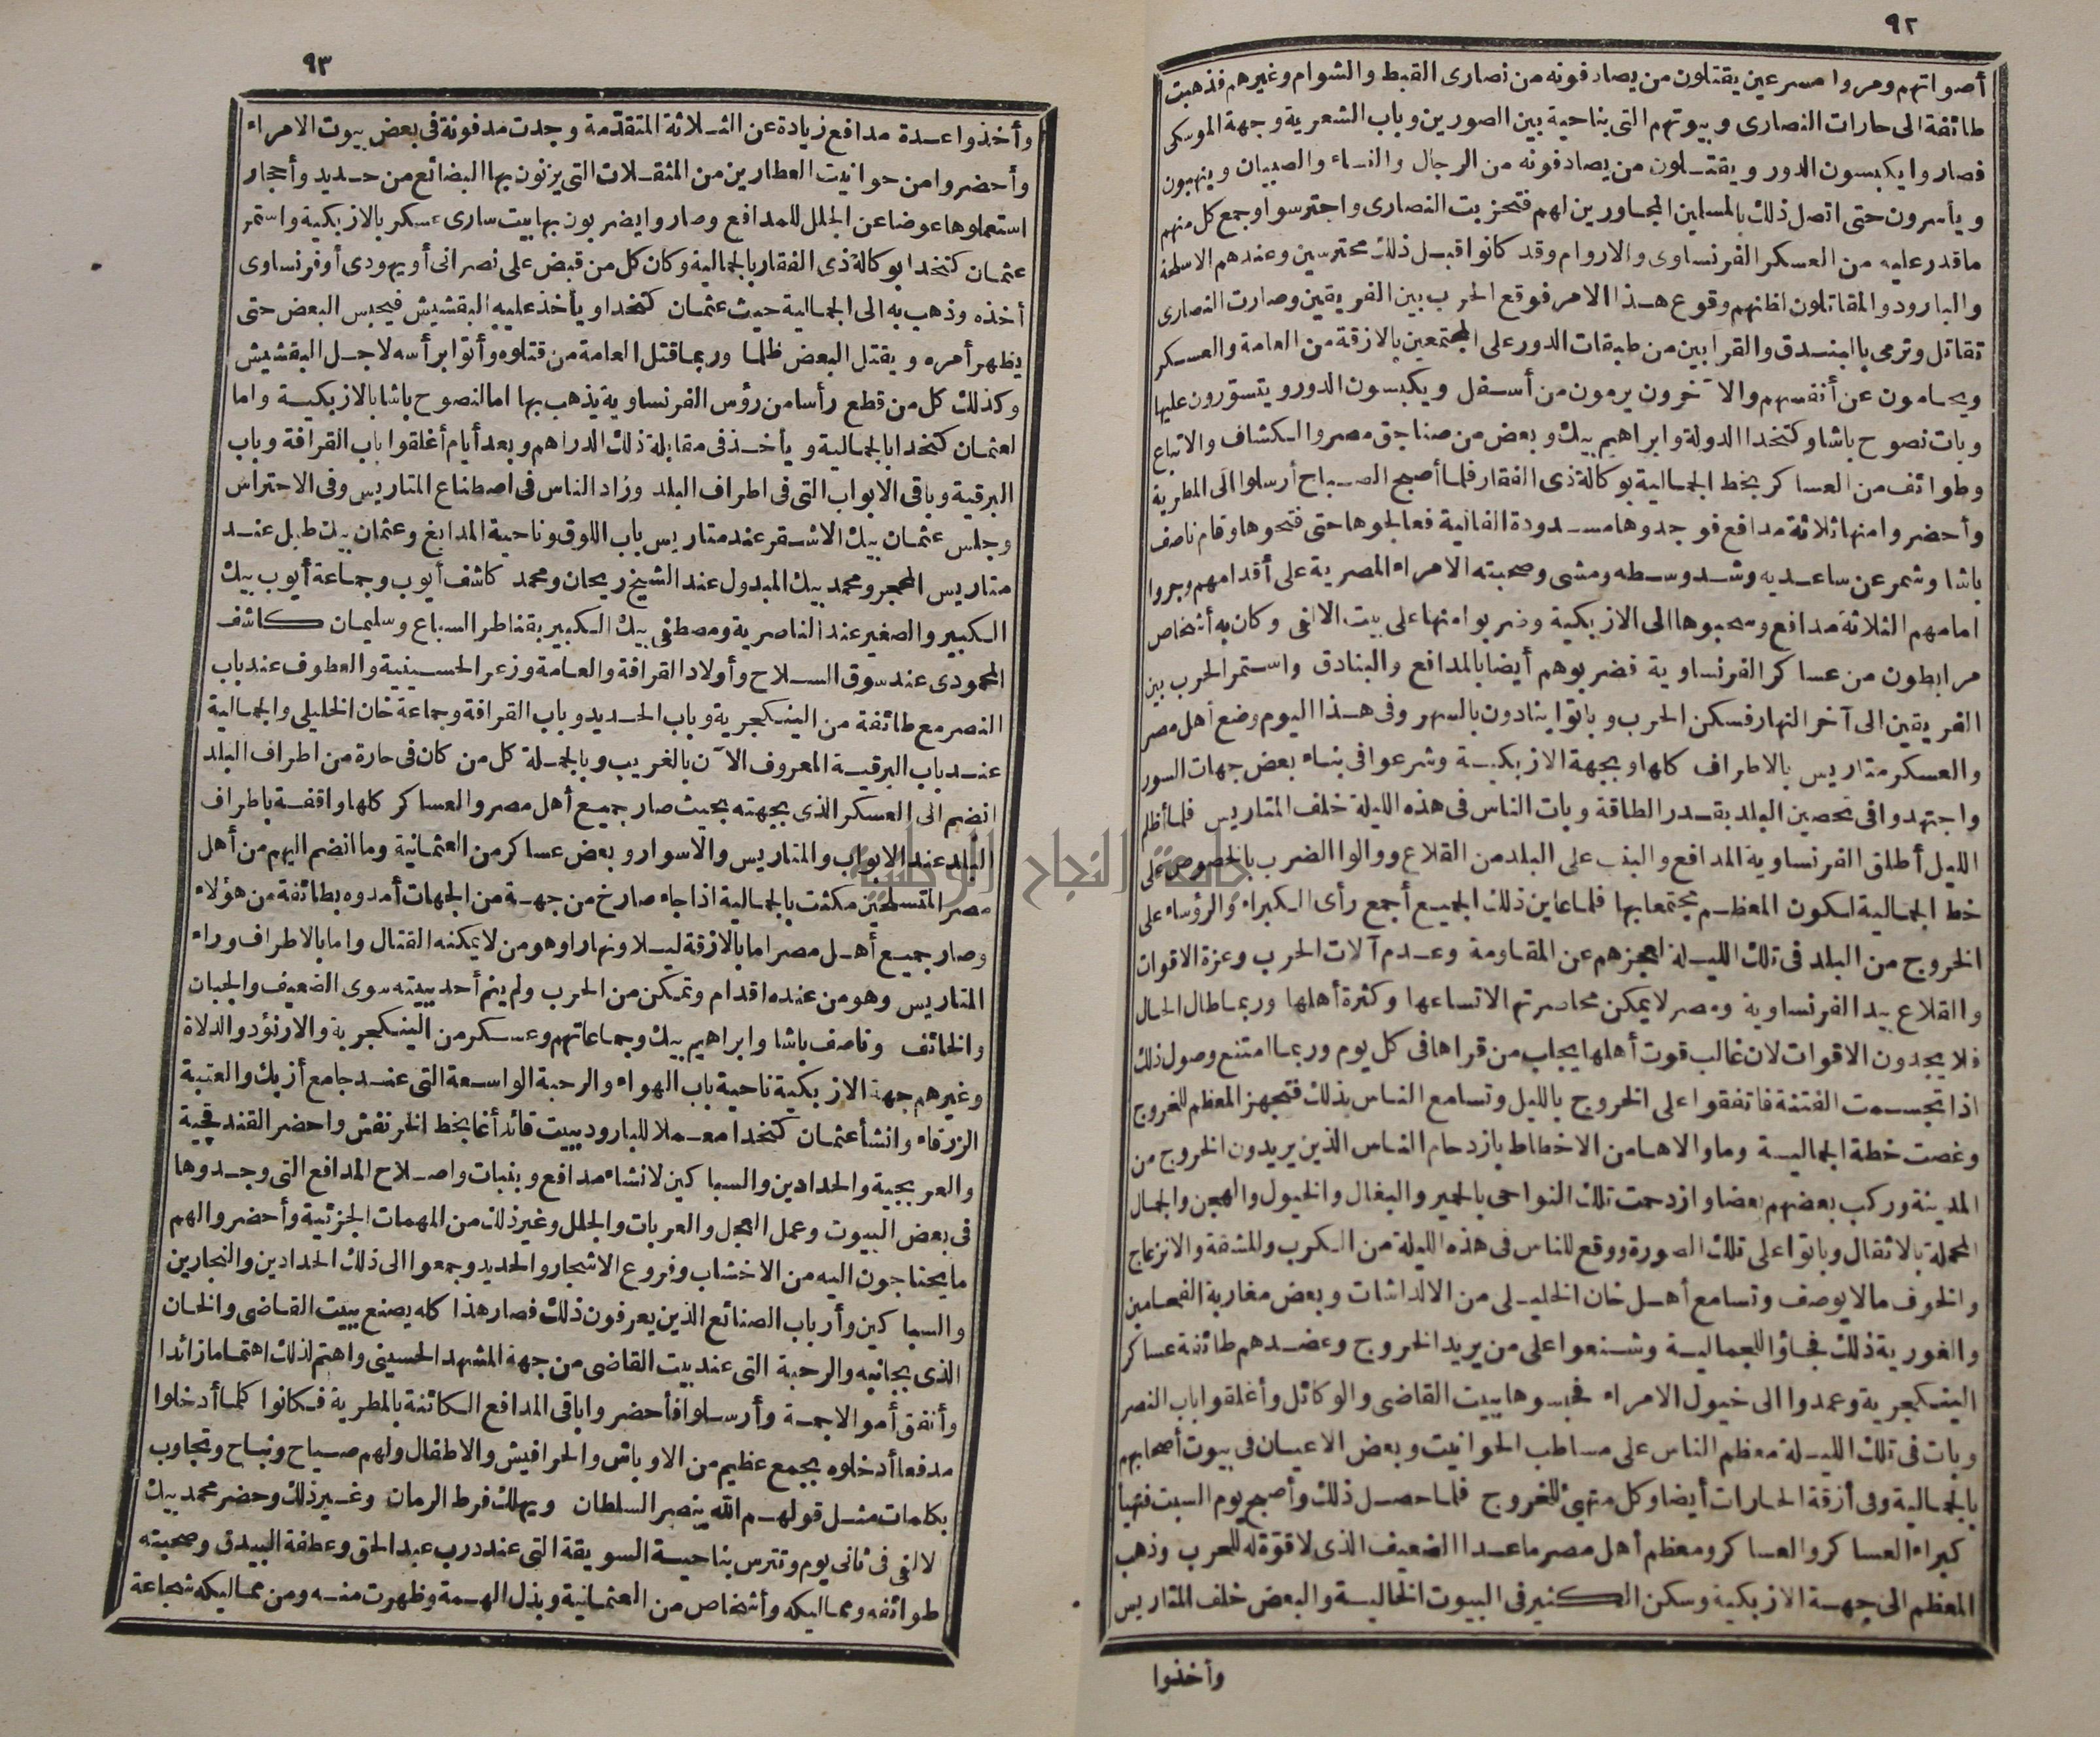 ٩٢
أصواتهم ومروا مسرعين يقتلون من يصادفونه من نصارى القبط والشوام وغيرهم فذهبت
طائفة الى حارات النصارى وبيوتهم التى بناحية بين الصورين وباب الشعرية وجهة الموسكى
فصاروا يكبسون الدور ويقتلون من يصادفونه من الرجال والنساء والصبيان وينهبون
ويأسرون حتى اتصل ذلك بالمسلمين المجاورين لهم فتحزبت النصارى واحترسوا وجمع كل منهم
ما قدر عليه من العسكر الفرنساوى والاروام وقد كانوا قبل ذلك محترسين وعندهم الاسلحة
والبارود والمقاتلون لظنهم وقوع هذا الامر فوقع الحرب بين الفريقين وصارت النصارى
تقاتل وترمى بالبندق والقرابين من طبقات الدور على المجتمعين بالازقة من العامة والعسكر
ويحامون عن أنفسهم والآخرون يرمون من أسفل ويكبسون الدور ويتسورون عليها
وبات نصوح باشا وكتخدا الدولة وابراهيم بيك وبعض من صناجق مصر والكشاف والاتباع
وطوائف من العساكر بخط الجمالية بوكالة ذى الفقار فلما أصبح الصباح أرسلوا الى المطرية
وأحضروا منها ثلاثة مدافع فوجدوها مسدودة الفالية فعالجوها حتى فتحوها وقام ناصف
باشا وشمر عن ساعديه وشد وسطه ومشى وصحبته الامراء المصرية على أقدامهم وجروا
امامهم الثلاثة مدافع وسحبوها الى الازبكية وضربوا منها على بيت الالفى وكان به أشخاص
مرابطون من عساكر الفرنساوية فضربوهم أيضا بالمدافع والبنادق واستمر الحرب بين
الفريقين الى آخر النهار فسكن الحرب وباتوا ينادون بالسهر وفى هذا اليوم وضع أهل مصر
والعسكر متاريس بالاطراف كلها وبجهة الازبكية وشرعوا فى بناء بعض جهات السور
واجتهدوا فى تحصين البلد بقدر الطاقة وبات الناس فى هذه الليلة خلف المتاريس فلما أظلم
الليل أطلق الفرنساوية المدافع والبنب على البلد من القلاع ووالوا الضرب بالخصوص على
خط الجمالية لكون المعظم مجتمعا بها فلما عاين ذلك الجميع أجمع رأى الكبراء والرؤساء على
الخروج من البلد فى تلك الليلة لعجزهم عن المقاومة وعدم آلات الحرب وعزة الاقوات
والقلاع بيد الفرنساوية ومصر لا يمكن محاصرتها لاتساعها وكثرة أهلها وربما طال الحال
فلا يجدون الاقوات لان غالب قوت أهلها يجلب من قراها فى كل يوم وربما امتنع وصول ذلك
اذا تجسمت الفتنة فاتفقوا على الخروج بالليل وتسامع الناس بذلك فتجهز المعظم للخروج
وغصت خطة الجمالية وما والاها من الاخطاط بازدحام الناس الذين يريدون الخروج من
المدينة وركب بعضهم بعضا وازدحمت تلك النواحى بالحمير والبغال والخيول والهجن والجمال
المحملة بالاثقال وباتوا على تلك الصورة ووقع للناس فى هذه الليلة من الكرب والمشقة والانزعاج
والخوف مالا يوصف وتسامع أهل خان الخليلى من الالداشات وبعض مغاربة الفحامين
والغورية ذلك فجاؤا للجمالية وشنعوا على من يريد الخروج وعضدهم طائفة عساكر
الينكجرية وعمدوا الى خيول الامراء فحبسوها ببيت القاضى والوكائل وأغلقوا باب النصر
وبات فى تلك الليلة معظم الناس على مساطب الحوانيت وبعض الاعيان فى بيوت أصحابهم
بالجمالية وفى أزقة الحارات أيضا وكل متهئ للخروج فلما حصل ذلك وأصبح يوم السبت فتهيأ
كبراء العساكر والعساكر ومعظم أهل مصر ماعدا الضعيف الذى لا قوة له للحرب وذهب
المعظم الى جهة الازبكية وسكن الكثير فى البيوت الخالية والبعض خلف المتاريس
وأخذوا
٩٣
وأخذوا عدة مدافع زيادة عن الثلاثة المتقدمة وجدت مدفونة فى بعض بيوت الامراء
وأحضروا من حوانيت العطارين من المثقلات التى يزنون بها البضائع من حديد وأحجار
استعملوها عوضا عن الجلل للمدافع وصاروا يضربون بها بيت سارى عسكر بالازبكية واستمر
عثمان كتخدا بوكالة ذى الفقار بالجمالية وكان كل من قبض على نصرانى أو يهودى أو فرنساوى
أخذه وذهب به الى الجمالية حيث عثمان كتخدا ويأخذ عليه البقشيش فيحبس البعض حتى
يظهر أمره ويقتل البعض ظلما وربما قتل العامة من قتلوه وأتوا برأسه لاجل البقشيش
وكذلك كل من قطع رأسا من رؤس الفرنساوية يذهب بها اما لنصوح باشا بالازبكية واما
لعثمان كتخدا بالجمالية ويأخذ فى مقابلة ذلك الدراهم وبعد أيام أغلقوا باب القرافة وباب
البرقية وباقى الابواب التى فى اطراف البلد وزاد الناس فى اصطناع المتاريس وفى الاحتراس
وجلس عثمان بيك الاشقر عند متاريس باب اللوق وناحية المدابغ وعثمان بيك طبل عند
متاريس المحجر ومحمد بيك المبدول عند الشيخ ريحان ومحمد كاشف أيوب وجماعة أيوب بيك
الكبير والصغير عند الناصرية ومصطفى بيك الكبير بقناطر السباع وسليمان كاشف
المحمودى عند سوق السلاح وأولاد القرافة والعامة وزعر الحسينية والعطوف عند باب
النصر مع طائفة من الينكجرية وباب الحديد وباب القرافة وجماعة خان الخليلى والجمالية
عند باب البرقية المعروف الآن بالغريب وبالجملة كل من كان فى حارة من اطراف البلد
انضم الى العسكر الذى بجهته بحيث صار جميع أهل مصر والعساكر كلها واقفة باطراف
البلد عند الابواب والمتاريس والاسوار وبعض عساكر من العثمانية وما انضم اليهم من أهل
مصر المتسلحين مكثت بالجمالية اذا جاء صارخ من جهة من الجهات أمدوه بطائفة من هؤلاء
وصار جميع أهل مصر اما بالازقة ليلا ونهارا وهو من لا يمكنه القتال واما بالاطراف وراء
المتاريس وهو من عنده اقدام وتمكن من الحرب ولم ينم أحد ببيته سوى الضعيف والجبان
والخائف وناصف باشا وابراهيم بيك وجماعاتهم وعسكر من الينكجرية والارنؤد والدلاة
وغيرهم جهة الازبكية ناحية باب الهواء والرحبة الواسعة التى عند جامع أزبك والعتبة
الزرقاء وانشأ عثمان كتخدا معملا للبارود ببيت قائد أغا بخط الخرنفش واحضر القندقجية
والعربجية والحدادين والسباكين لانشاء مدافع وبنبات واصلاح المدافع التى وجدوها
فى بعض البيوت وعمل العجل والعربات والجلل وغير ذلك من المهمات الجزئية وأحضروا لهم
ما يحتاجون اليه من الاخشاب وفروع الاشجار والحديد وجمعوا الى ذلك الحدادين والنجارين
والسباكين وأرباب الصنائع الذين يعرفون ذلك فصار هذا كله يصنع ببيت القاضى والخان
الذى بجانبه والرحبة التى عند بيت القاضى من جهة المشهد الحسينى واهتم لذلك اهتماما زائدا
وأنفق أموالا جمة وأرسلوا فأحضروا باقى المدافع الكائنة بالمطرية فكانوا كلما أدخلوا
مدفعا أدخلوه بجمع عظيم من الاوباش والحرافيش والاطفال ولهم صياح ونباح وتجاوب
بكلمات مثل قولهم الله ينصر السلطان ويهلك فرط الرمان وغير ذلك وحضر محمد بيك
لالفى فى ثانى يوم وتترس بناحية السويقة التى عند درب عبد الحق وعطفة البيدق وصحبته
طوائفه ومماليكه وأشخاص من العثمانية وبذل الهمة وظهرت منه ومن مماليكه شجاعة
جامعة النجاح الوطنية